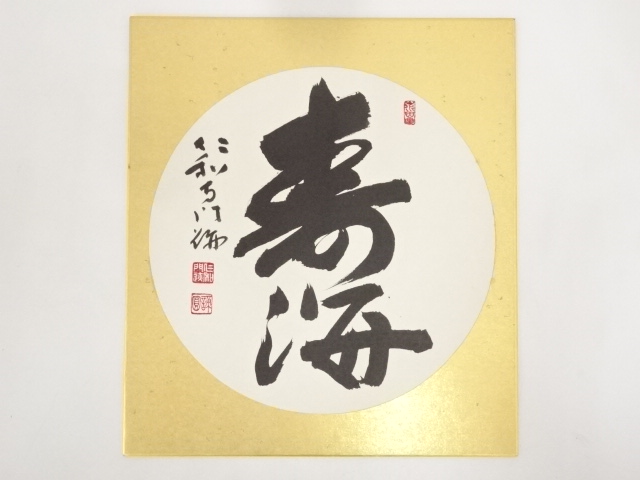 寿海
仁和寺門跡